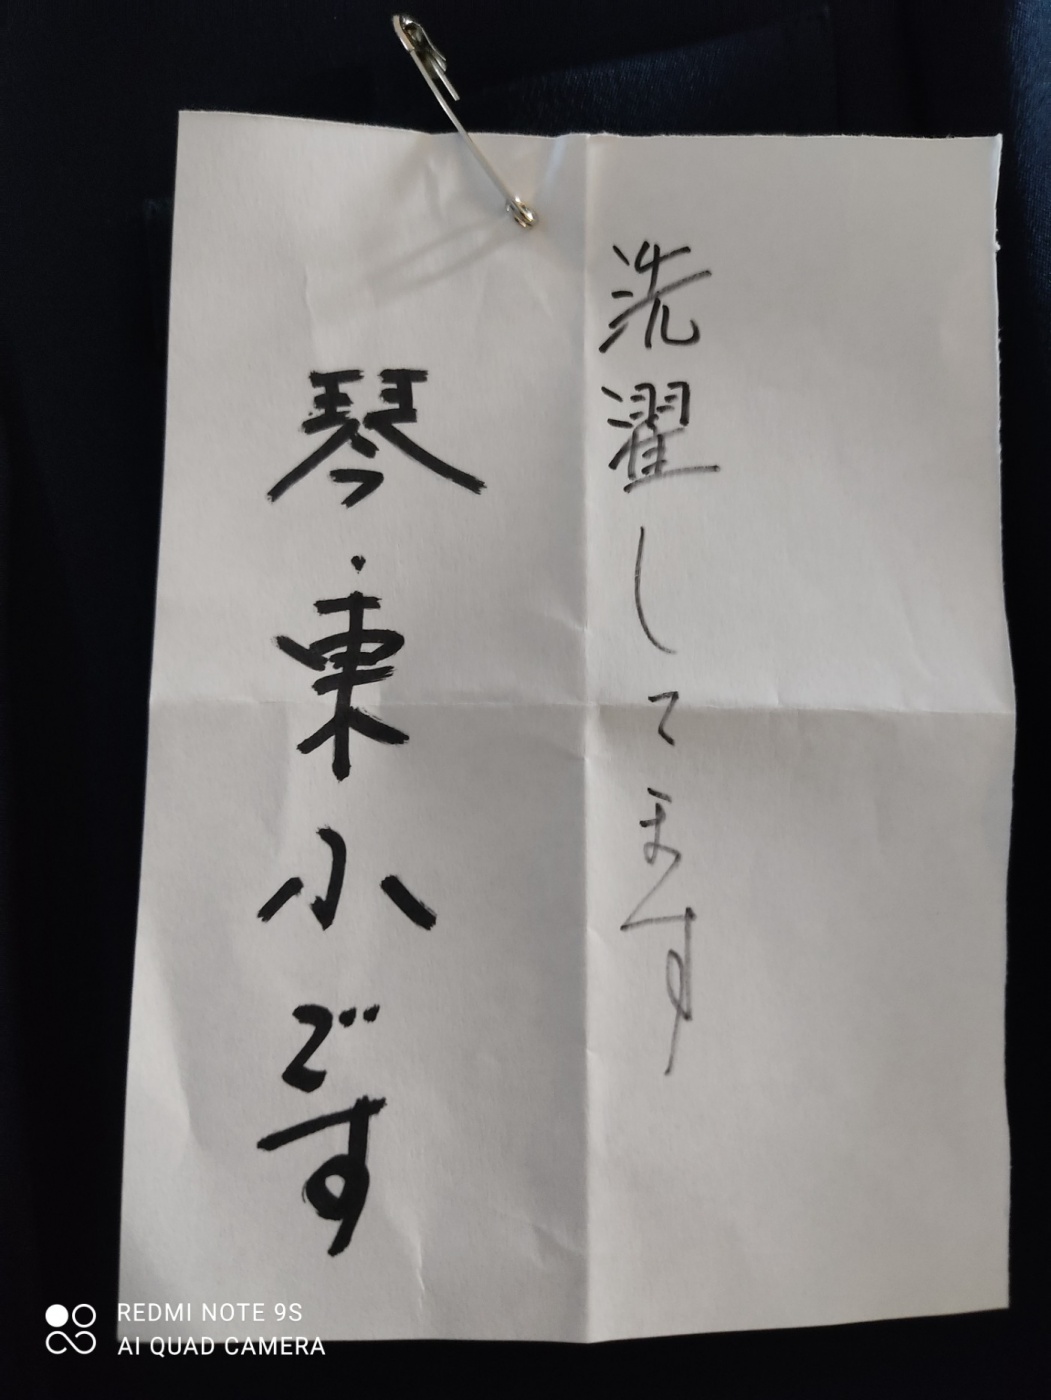 洗濯してます
琴・東小です
REDMI NOTE 9S
AI QUAD CAMERA